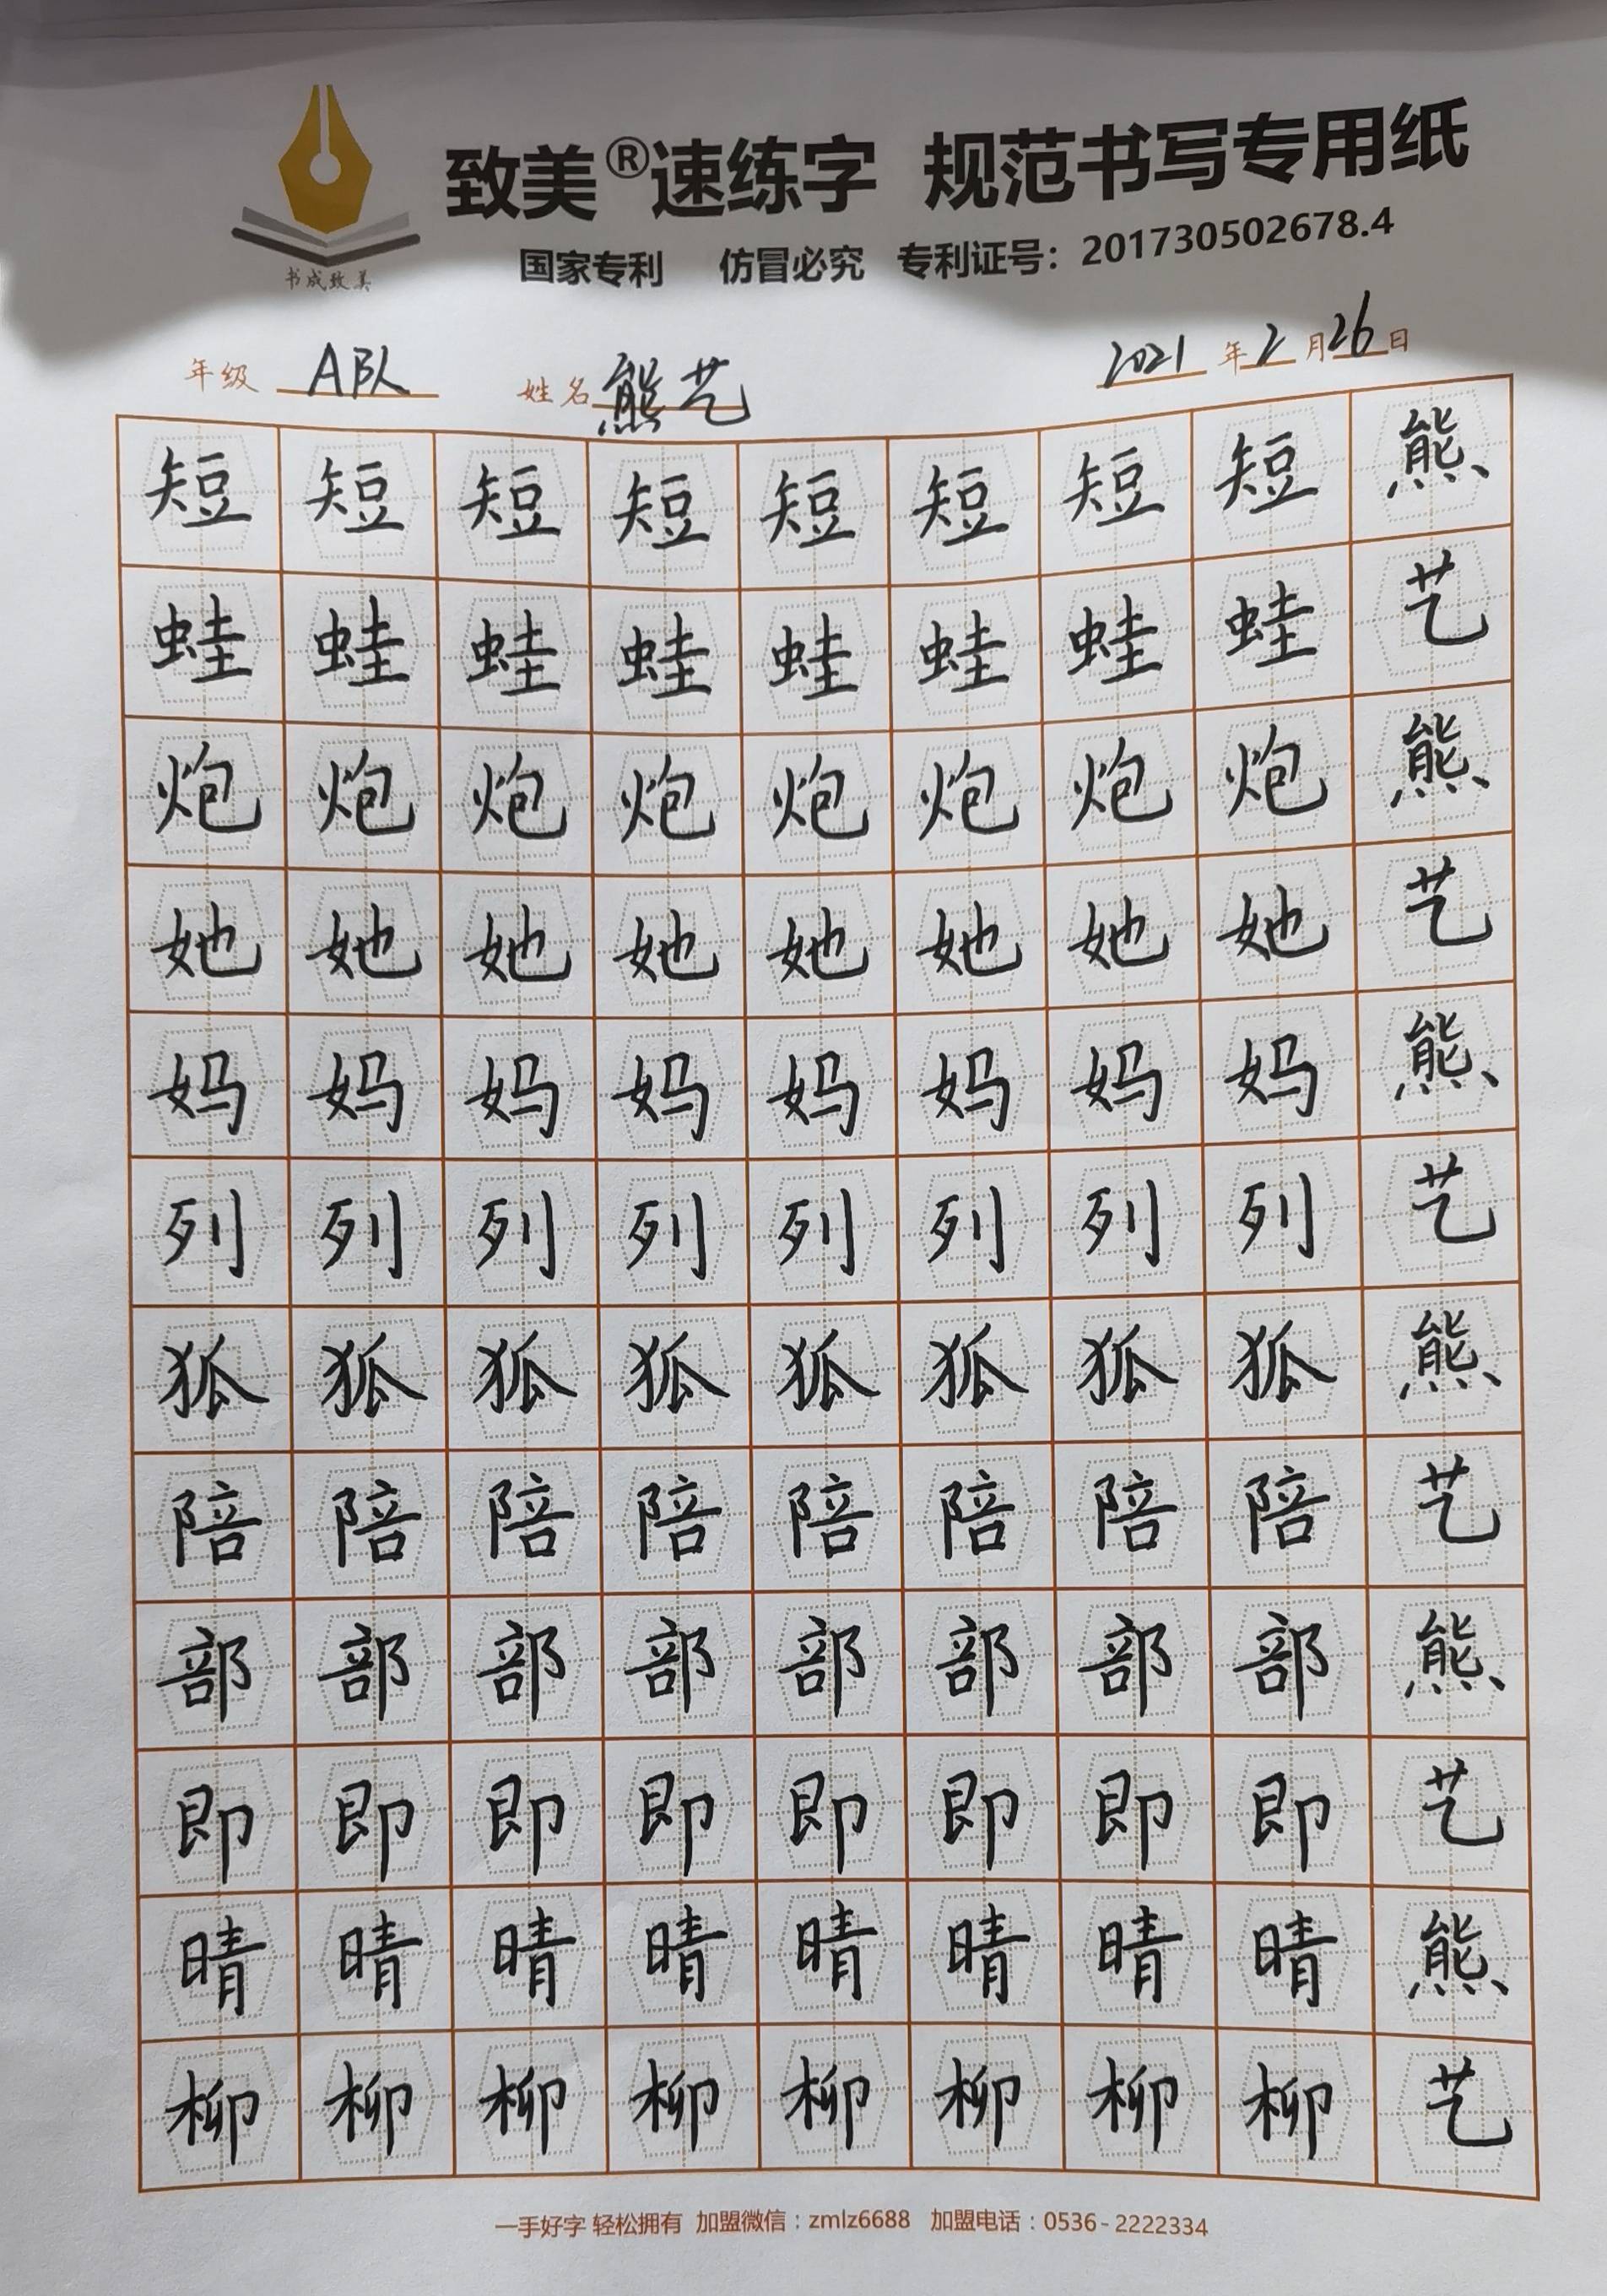 致美®速练字 规范书写专用纸
国家专利 仿冒必究 专利证号：201730502678.4
书成致美
年级 A队 姓名 熊艺 2021年2月26日
短短短短短短短短熊
蛙蛙蛙蛙蛙蛙蛙蛙艺
炮炮炮炮炮炮炮炮熊
她她她她她她她她艺
妈妈妈妈妈妈妈妈熊
列列列列列列列列艺
狐狐狐狐狐狐狐狐熊
陪陪陪陪陪陪陪陪艺
部部部部部部部部熊
即即即即即即即即艺
晴晴晴晴晴晴晴晴熊
柳柳柳柳柳柳柳柳艺
一手好字 轻松拥有 加盟微信：zmlz6688 加盟电话：0536-2222334